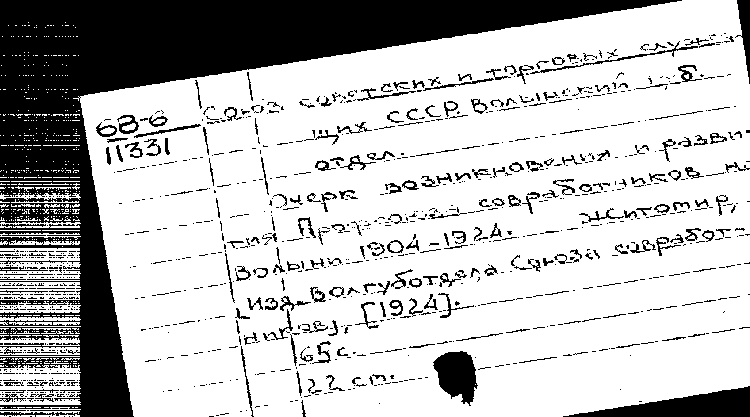 68-6
11331
Союз советских и торговых служа-
щих СССР. Волынский губ.
отдел.
Очерк возникновения и разви-
тия Профсоюза совработников на
Волыни 1904-1924. Житомир,
[Изд. Волгуботдела Союза совработ-
ников], [1924].
65 с.
22 cm.